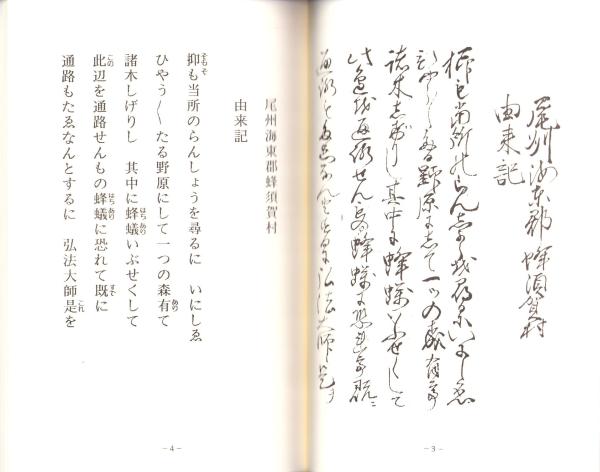 尾州海東郡蜂須賀村
由来記
抑も当所のらん志やう越尋るにいにし恐
ひやう／＼たる野原にして一つの森有て
諸木志げりし其中に蜂蟻いぶせくして
此辺越通路せんもの蜂蟻に恐れて既に
通路もたゑなんとするに弘法大師是を
－3－
尾州海東郡蜂須賀村
由来記
抑も当所のらんしょうを尋るに　いにしゑ
ひやう／＼たる野原にして一つの森有て
諸木しげりし　其中に蜂蟻いぶせくして
此辺を通路せんもの蜂蟻に恐れて既に
通路もたゑなんとするに　弘法大師是を
－4－